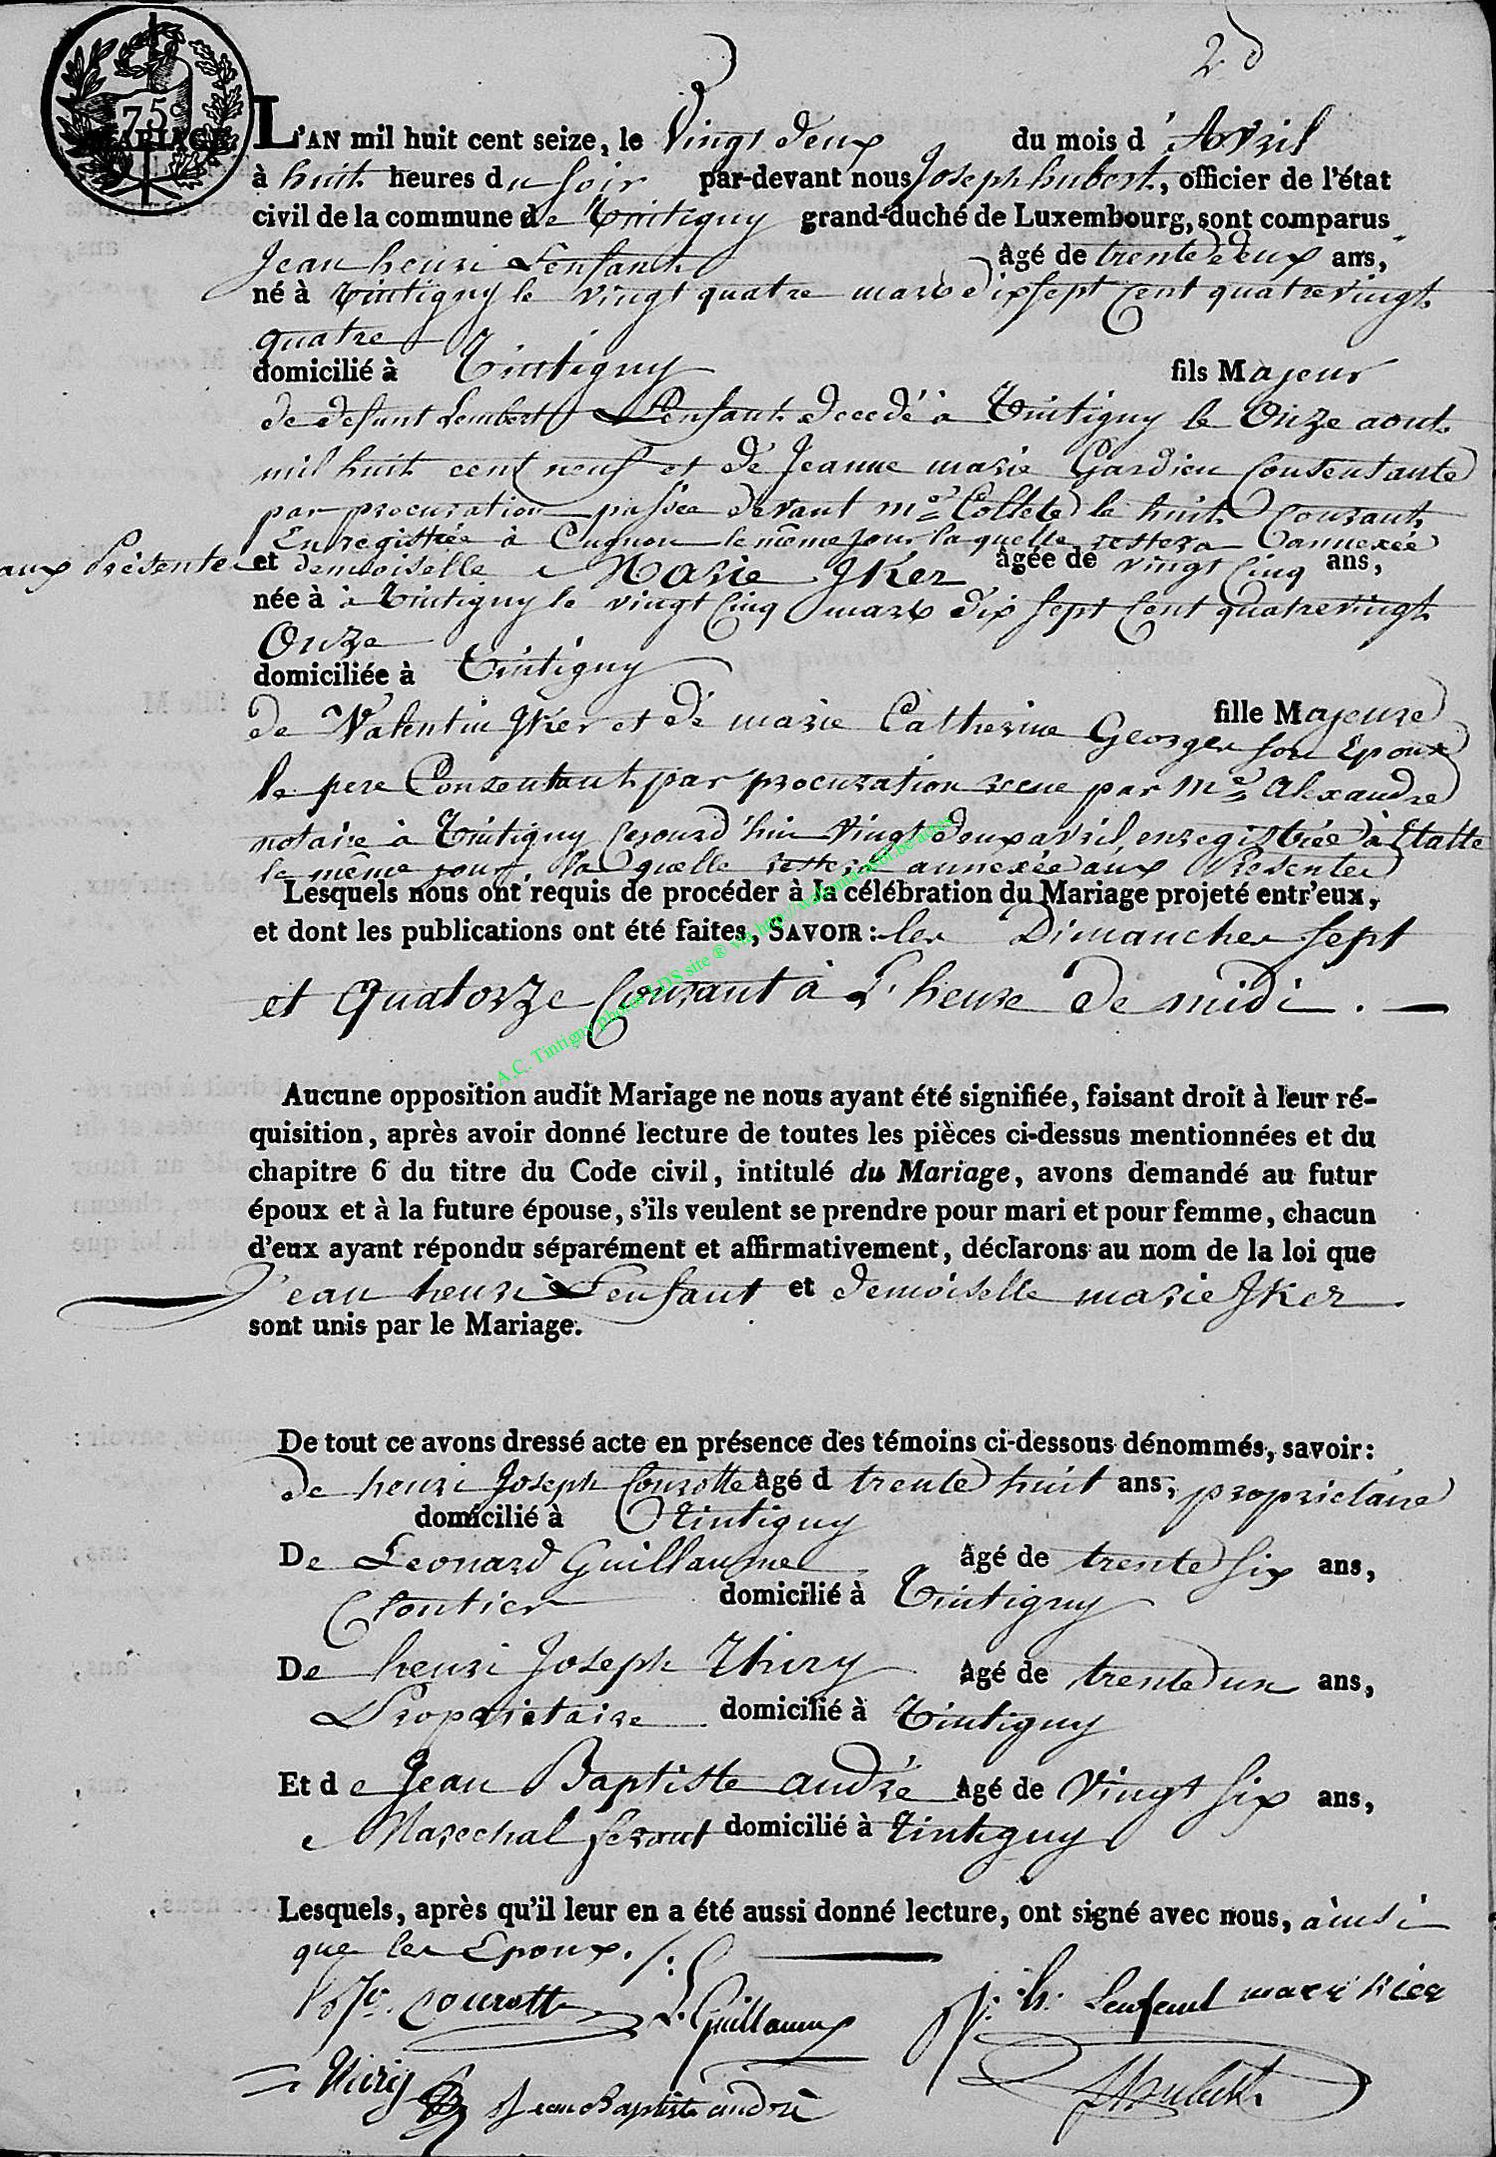 2d
75c
MARIAGE.
L'AN mil huit cent seize, le Vingt deux du mois d'Avril
à huit heures du soir par-devant nous Joseph hubert, officier de l'état
civil de la commune de Tintigny grand-duché de Luxembourg, sont comparus
Jean henri Lenfant âgé de trente deux ans,
né à Tintigny le vingt quatre mars dix sept Cent quatrevingt
quatre
domicilié à Tintigny fils Majeur
de defunt Lembert Lenfant decedé à Tintigny le Onze aout
mil huit cent neuf et de Jeanne marie Gardien Consentante
par procuration passée devant me Collete le huit Courant
Enregistrée à Cugnon le même jour laquelle restera annexée
aux Présente et demoiselle Marie Jker âgée de vingt Cinq ans,
née à à Tintigny le vingt Cinq mars dix sept Cent quatrevingt
Onze
domiciliée à Tintigny
fille Majeure
de Valentin Jker et de marie Catherine George son Epoux
le pere Consentant par procuration recue par me alexandre
notaire à Tintigny Cejourd'hui Vingt deux avril, enregistrée à Etalle
le même jour, la quelle restera annexée aux Présente
Lesquels nous ont requis de procéder à la célébration du Mariage projeté entr'eux,
et dont les publications ont été faites, SAVOIR : les Dimanches sept
et Quatorze Courant à L'heure de midi. —
A.C. Tintigny photos LDS site ® via http://wallonia-asbl.be/actes
Aucune opposition audit Mariage ne nous ayant été signifiée, faisant droit à leur ré-
quisition, après avoir donné lecture de toutes les pièces ci-dessus mentionnées et du
chapitre 6 du titre du Code civil, intitulé du Mariage, avons demandé au futur
époux et à la future épouse, s'ils veulent se prendre pour mari et pour femme, chacun
d'eux ayant répondu séparément et affirmativement, déclarons au nom de la loi que
Jean henri Lenfant et demoiselle marie Jker
sont unis par le Mariage.
De tout ce avons dressé acte en présence des témoins ci-dessous dénommés, savoir:
de henri Joseph Courotte âgé d trente huit ans, proprietaire
domicilié à Tintigny
De Leonard Guillaume âgé de trente six ans,
Cloutier domicilié à Tintigny
De henri Joseph Thiry âgé de trente un ans,
Proprietaire domicilié à Tintigny
Et de Jean Baptiste andré âgé de Vingt six ans,
Marechal ferant domicilié à Tintigny
Lesquels, après qu'il leur en a été aussi donné lecture, ont signé avec nous, ainsi
que les Epoux ./.
courotte L. Guillaume j. h. Lenfant marie Kier
Thiry Jean Baptiste andré JHubert